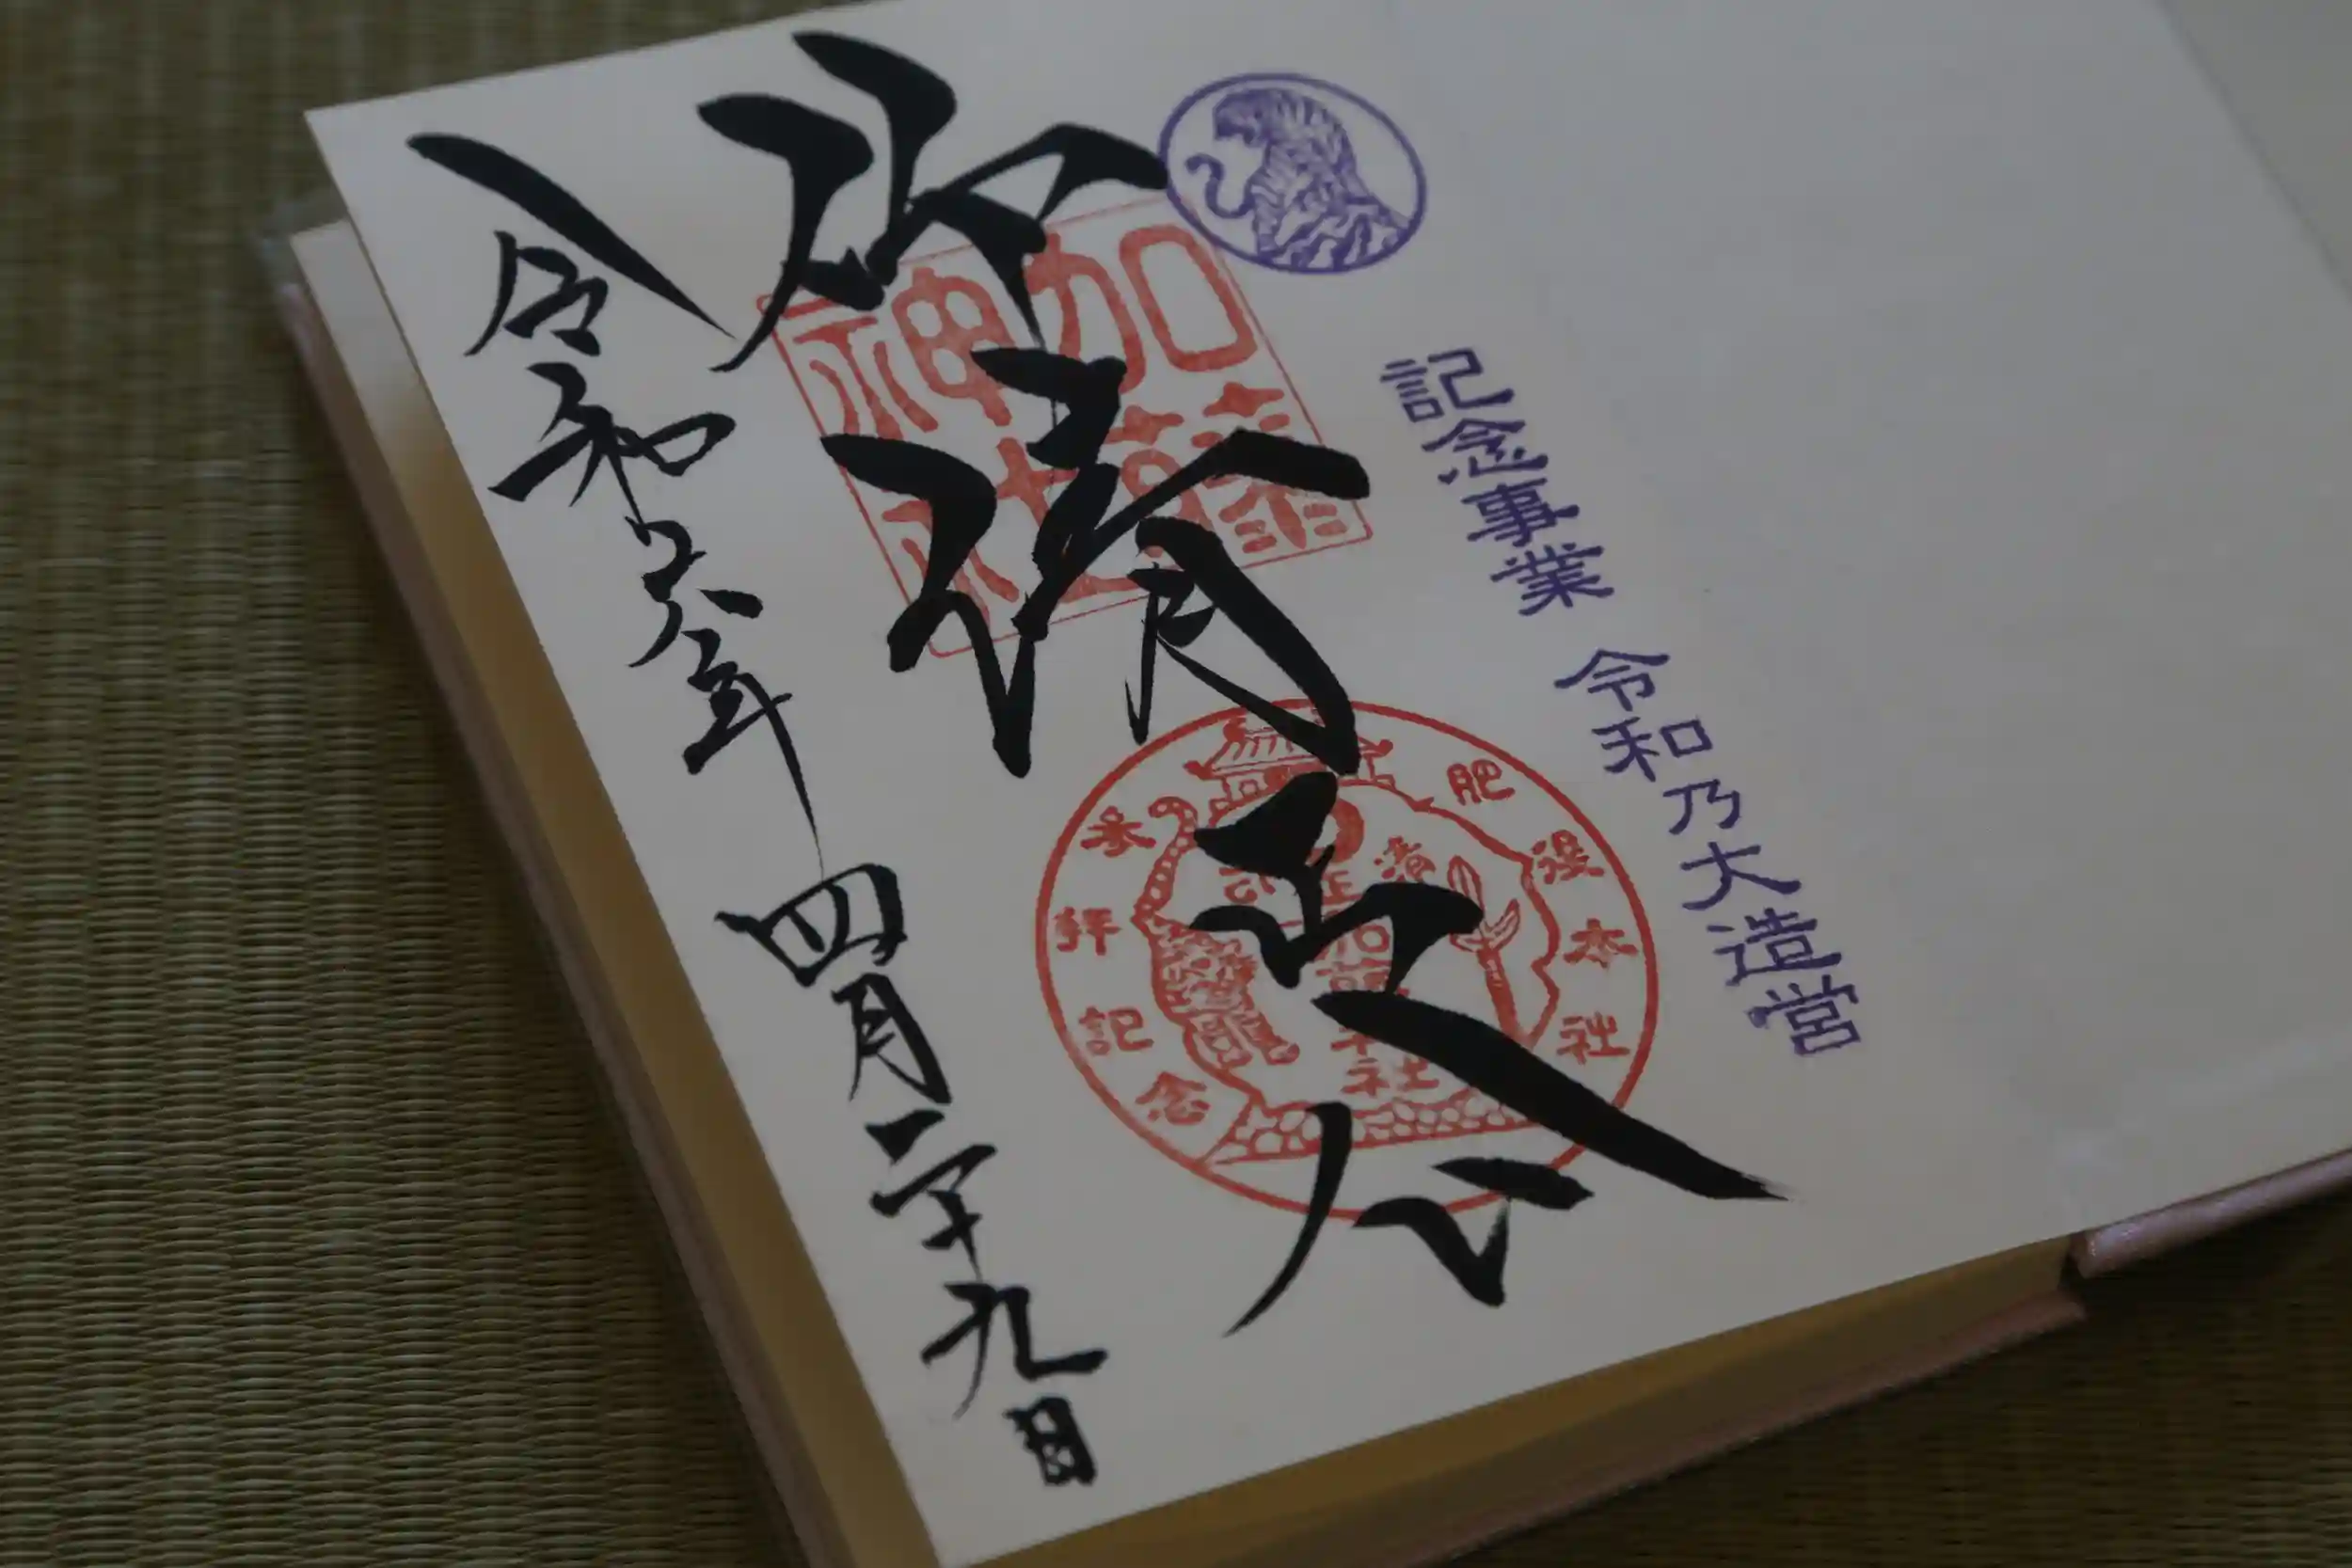 記念事業 令和乃大造営
清正公
加藤神社
肥後本社
参拝記念
加藤神社
令和六年 四月二十九日